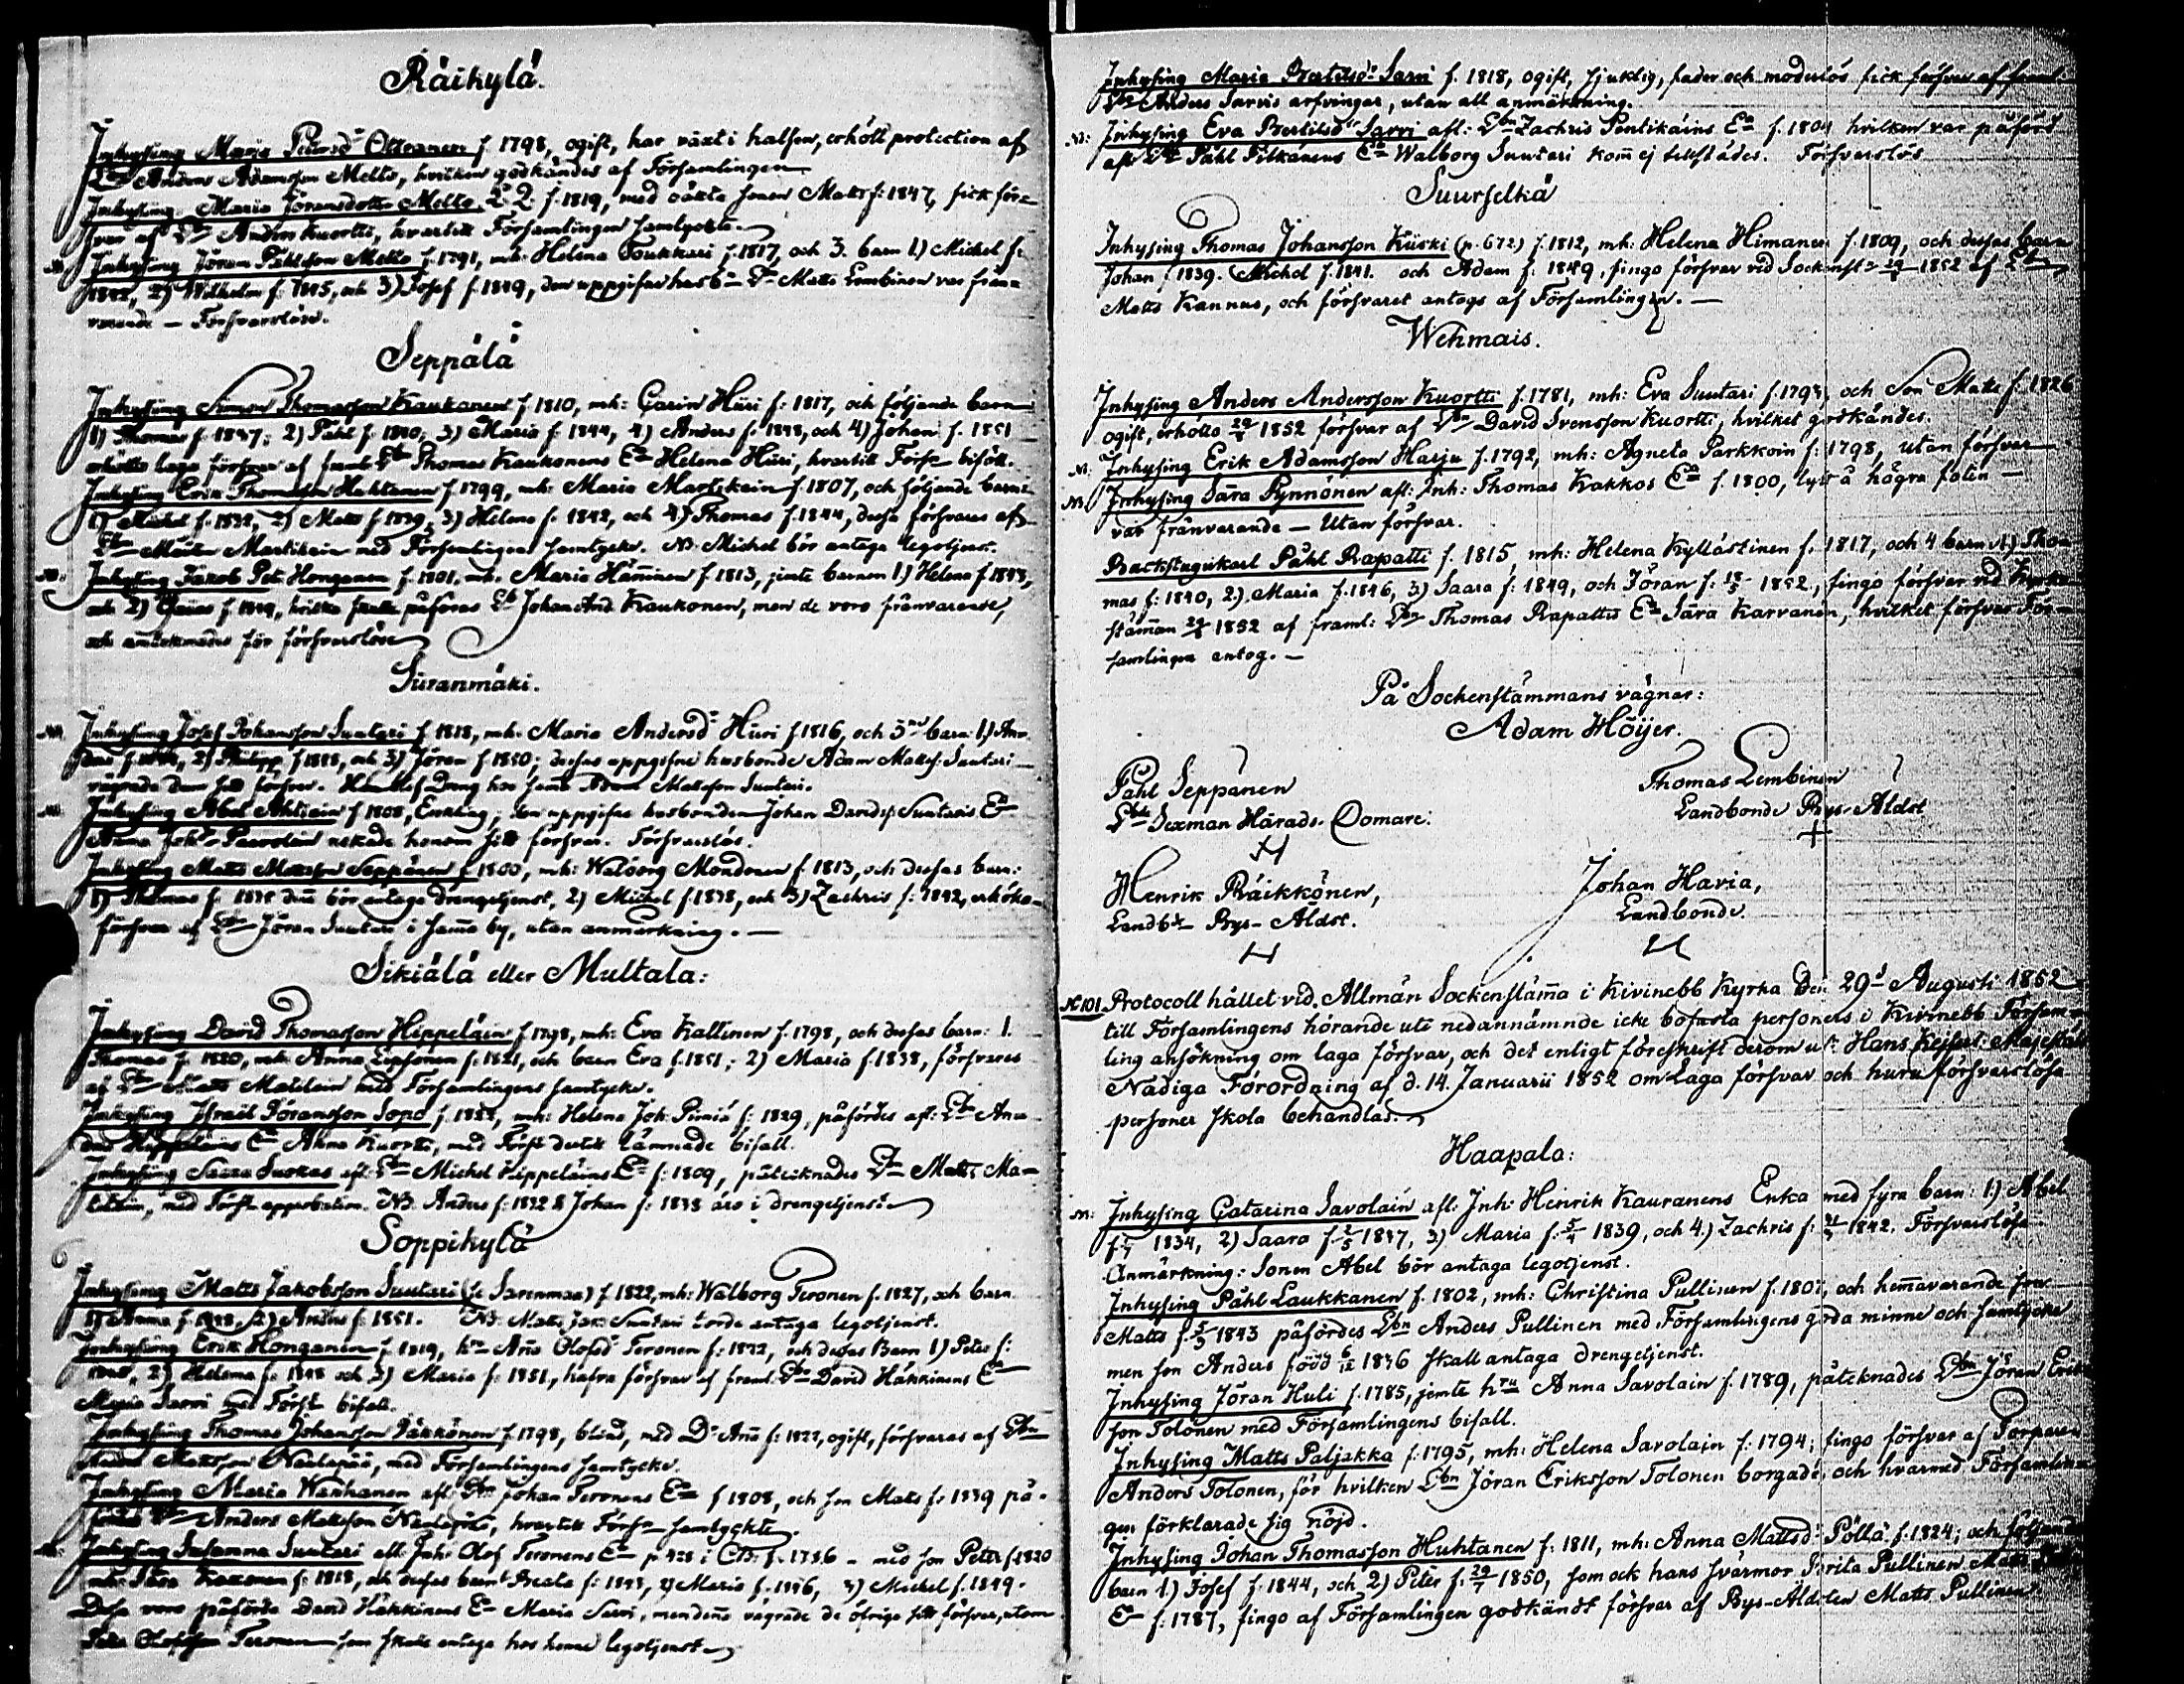 Räikylä
Inhysing Maria Petersdr Ollranen f. 1798, ogift, har växt i halsen, erhöll protection af
Lbn Anders Adamsson Mello, hvilken godkändes af Församlingen
Inhysing Maria Jöransdotter Mello f. 1819, med oäkta sonen Matts f: 1847, fick för=
svar af Lbn Anders Kuortti, hvartill Församlingen samtyckte.
Inhysing Jöran Påhlsson Mello f. 1791, mh: Helena Toukkari f. 1817, och 3. barn 1.) Michel f:
2) Wilhelm f: 1845, och 3) Josef f. 1849, den uppgifne husb:n Lbn Matts Lembinen var från=
varande – Försvarslöse.
Seppälä
Inhysing Simon Thomasson Kaukonen f. 1810, mh: Carin Hüri f: 1817, och följande barn
1) Thomas f. 1837; 2) Påhl f. 1840; 3) Maria f. 1844, 4) Anders f. 1848, och 4) Johan f. 1851
erhöllo laga försvar af framl. Lbn Thomas Kaukonens Ea Helena Hüri, hvartill Förs:n biföll.
Inhysing Erik Thomasson Huhtanen f. 1799, mh: Maria Martikain f. 1807, och följande barn:
1) Michel f. 1832, 2) Matts f. 1839, 3) Helena f. 1842, och 4) Thomas f. 1844, dessa försvaras af
Lbn Mårten Martikain med Församlingens samtycke. NB. Michel bör antaga legotjenst.
Inhysing Jakob Pet. Honganen f. 1801. mh. Maria Häminen f. 1813, jemte barnen 1.) Helena f. 1843,
och 2) f. 1849, hvilka skulle påföras Lb. Johan And. Kaukonen, men de voro frånvarande,
och anteknades för försvarslöse
Süranmäki.
Inhysing Josef Johansson Suutari f. 1818, mh. Maria Andersd:r Hüri f. 1816, och 3ne barn: 1.) An-
ders f. 2) Philipp f. 1848, och 3) Jöran f. 1850; dessas uppgifne husbonde Adam Matts. Suutari
vägrade dem sitt försvar. Drang hos samma Adam Matsson Suutari.
Inhysing Abel Ahtiain f. 1808, Enkling, den uppgifne husbonden Johan Davids: Suutaris Ea
Anna Joh:dr nekade honom sitt försvar. Försvarslös.
Inhysing Matts Mattsson Seppänen f. 1800, mh: Walborg Mondonen f. 1813, och dessas barn:
1) Thomas f. 1835 bör antaga drengetjenst, 2) Michel f. 1838, och 3) Zachris f: 1842, erhöllo
försvar af Lbn Jöran Suutari i samma by, utan anmärkning. —
Sikiälä eller Multala:
Inhysing David Thomasson Hippeläin f. 1798, mh: Eva Kallinen f. 1798, och dessas barn: 1.
Thomas f. 1820, mh. Anna f. 1821, och barn Eva f. 1851; 2) Maria f. 1838, försvares
af Lbn Matts med Församlingens samtycke.
Inhysing Israël Jöransson Sopo f. mh: Helena Joh: f: 1829, påfördes afl: Lbn An-
ders Hippeläins Ea Anna Kuortti, med Förs:n lämnade bifall.
Inhysing Saara Suokas afl: Lbn Michel Hippeläins Ea f: 1809, påteknades Lbn Matts Ma-
med Förs:n approbation. NB. Anders f: 1832 & Johan f: 1838 äro i drengetjenst.
Soppikylä
Inhysing Matts Jakobsson Suutari f. 1822, mh: Walborg Teronen f. 1827, och barn
1) Anna f. 1848, 2) Anders f: 1851. NB. Matts Jak: Suutari torde antaga legotjenst.
Inhysing Erik Honganen f. 1819, Olofsd: Teronen f: och dessas barn 1) Peter f:
2) Helena f: 1848 och 3) Maria f: 1851, hafva försvar af framl: Lbn David Häkkinens Ea
Maria Sarri med Förs:n bifall.
Inhysing Thomas Johansson Jäkkönen f. 1798, blind, med D:r f: 1822, ogift, försvaras af Lbn
Anders Mattsson med Församlingens samtycke.
Inhysing Maria Wanhanen afl: Lbn Johan Teronens Ea f. 1808, och son Matts f: 1839 på-
fördes Lbn Anders Matsson hvartill Förs:n samtyckte.
Inhysing Susanna Suutari afl: Inh: Olof Teronens Ea p. 428 i f. 1786 – med son Peter f. 1820
mh: Sara f. 1818, och dessas barn: Beata f: 1843, 2) Maria f. 1846, 3) Michel f. 1849.
Dessa voro påförda David Häkkinens Ea Maria Sarri, men denna vägrade de öfriga sitt försvar, utom
Peter Olofsson Teronen som skulle antaga hos henne legotjenst
Inhysing Maria Bertilsd:r Sarri f. 1818, ogift, sjuklig, fader och moderlös fick försvar af framl:
Lbn Anders Sarris arfvingar, utan all anmärkning.
N: Inhysing Eva Bertilsd:r Sarri afl: Lbn Zachris Pentikäins Ea f. 1804 hvilken var påförd
afl: Lbn Påhl Pilkänens Ea Walborg Suutari kom ej tillstädes. Försvarslös
Suurselkä
Inhysing Thomas Johansson Küski (p. 672.) f. 1812, mh: Helena Himanen f. 1809, och dessas barn
Johan f. 1839. Michel f. 1841. och Adam f: 1849, fingo försvar vid Sockenst:n 29/8 1852 af Lbn
Matts Kannus, och försvaret antogs af Församlingen. —
Wehmais.
Inhysing Anders Andersson Kuortti f. 1781, mh: Eva Suutari f. 1793, och Son Matts f. 1826
ogift, erhöllo 29/8 1852 försvar af Lbn David Svensson Kuortti, hvilket godkändes.
N: Inhysing Erik Adamsson Harju f. 1792, mh: Agneta Parkkoin f: 1798, utan försvar
N: Inhysing Sara Pynnönen afl: Inh: Thomas Kakkos Ea f. 1800, lytt å högra foten —
var frånvarande — Utan försvar.
Backstugukarl Påhl Rapatti f. 1815, mh: Helena Kyllästinen f. 1817, och 4 barn 1.) Tho-
mas f: 1840, 2) Maria f. 1846, 3) Saara f: 1849, och Jöran f: 1852, fingo försvar vid Kyrko-
stämman 29/8 1852 af framl: Lbn Thomas Rapattis Ea Sara Karvanen, hvilket försvar För=
samlingen antog. —
På Sockenstämmans vägnar:
Adam Höijer.
Påhl Seppänen
Lbde Sexman Härads-Domare:
Thomas Lembinen
Landbonde Bys-Äldst
Henrik Räikkönen,
Landb:de Bys-Äldst.
Johan Havia,
Landbonde.
N 101. Protocoll hållet vid Allmän Sockenstämma i Kivinebb Kyrka den 29d Augusti 1852
till Församlingens hörande uti nedannämnde icke bofasta personers i Kivinebb Försam=
ling ansökning om laga försvar, och det enligt föreskrift derom uti Hans Kejserl: Majestäts
Nådiga Förordning af d. 14. Januarii 1852 om Laga försvar och huru försvarslösa
personer skola behandlas.
Haapala:
N: Inhysing Catarina Savolain afl. Inh: Henrik Kauranens Enka med fyra barn: 1.) Abel
f. 1834, 2) Saara f. 2/5 1837, 3) Maria f. 5/4 1839, och 4.) Zachris f: 1842. Försvarslöse
Anmärkning: Sonen Abel bör antaga legotjenst.
Inhysing Påhl Laukkanen f. 1802, mh: Christina Pullinen f. 1807, och hemmavarande son
Matts f. 1843 påfördes Lbn Anders Pullinen med Församlingens goda minne och samtycke
men son Anders född 6/12 1836 skall antaga drengetjenst.
Inhysing Jöran Huli f. 1785, jemte hru Anna Savolain f. 1789, påteknades Lbn Jöran Eriks-
son Tolonen med Församlingens bifall.
Inhysing Matts Paljakka f. 1795, mh: Helena Savolain f: 1794; fingo försvar af Torparen
Anders Tolonen, för hvilken Lbn Jöran Eriksson Tolonen borgade, och hvarmed Församlin-
gen förklarade sig nöjd.
Inhysing Johan Thomasson Huhtanen f. 1811, mh: Anna Mattsd:r Pöllä f. 1824; och följande
barn 1.) Josef f. 1844, och 2) Peter f. 29/7 1850, som ock hans svärmor Brita Pullinen
Ea f: 1787, fingo af Församlingen godkändt försvar af Bys-Äldsten Matts Pullinen